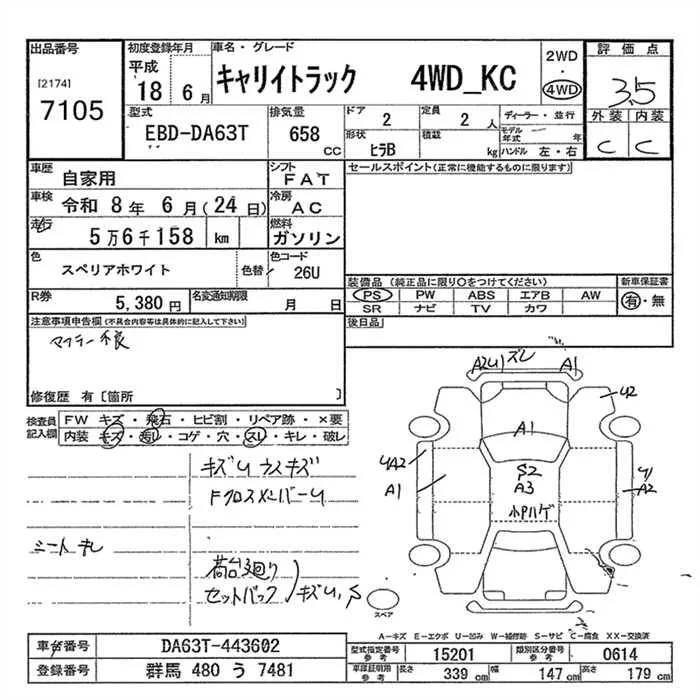 出品番号
[2174]
7105
初度登録年月
平成
18 6月
車名・グレード
キャリイトラック 4WD_KC
2WD
・
4WD
評価点
3.5
外装 内装
C C
型式
EBD-DA63T
排気量
658
CC
ドア
2
定員
2人
形状
ヒラB
積載
kg
ディーラー・並行
モデル年式 年
ハンドル 左・右
車歴
自家用
シフト
FAT
車検
令和 8年 6月(24日)
冷房
AC
走行
5万6千158 km
燃料
ガソリン
色
スペリアホワイト
色替
色コード
26U
R券
5,380円
名変通知期限
月 日
セールスポイント(正常に機能するものに限ります)
装備品(純正品に限り○をつけてください)
PS PW ABS エアB AW
SR ナビ TV カワ
新車保証書
有・無
後日品
注意事項申告欄(不具合内容等は具体的に記入して下さい)
マフラー不良
修復歴 有[箇所 ]
検査員記入欄
FW キズ・飛石・ヒビ割・リペア跡・×要
内装 キズ・汚レ・コゲ・穴・スレ・キレ・破レ
キズU
Fクロスメンバーu
シートキレ
荷台廻り
セットバック
キズu,S
A2U1ズレ A1
U2
A1
S2
A3
A1
A2
スペア
A-キズ E-エクボ U-凹み W-補修跡 S-サビ C-腐食 XX-交換済
車台番号
DA63T-443602
登録番号
群馬 480 う 7481
型式指定番号
参考
15201
類別区分番号
参考
0614
車庫証明用
参考
長さ
339 cm
幅
147 cm
高さ
179 cm